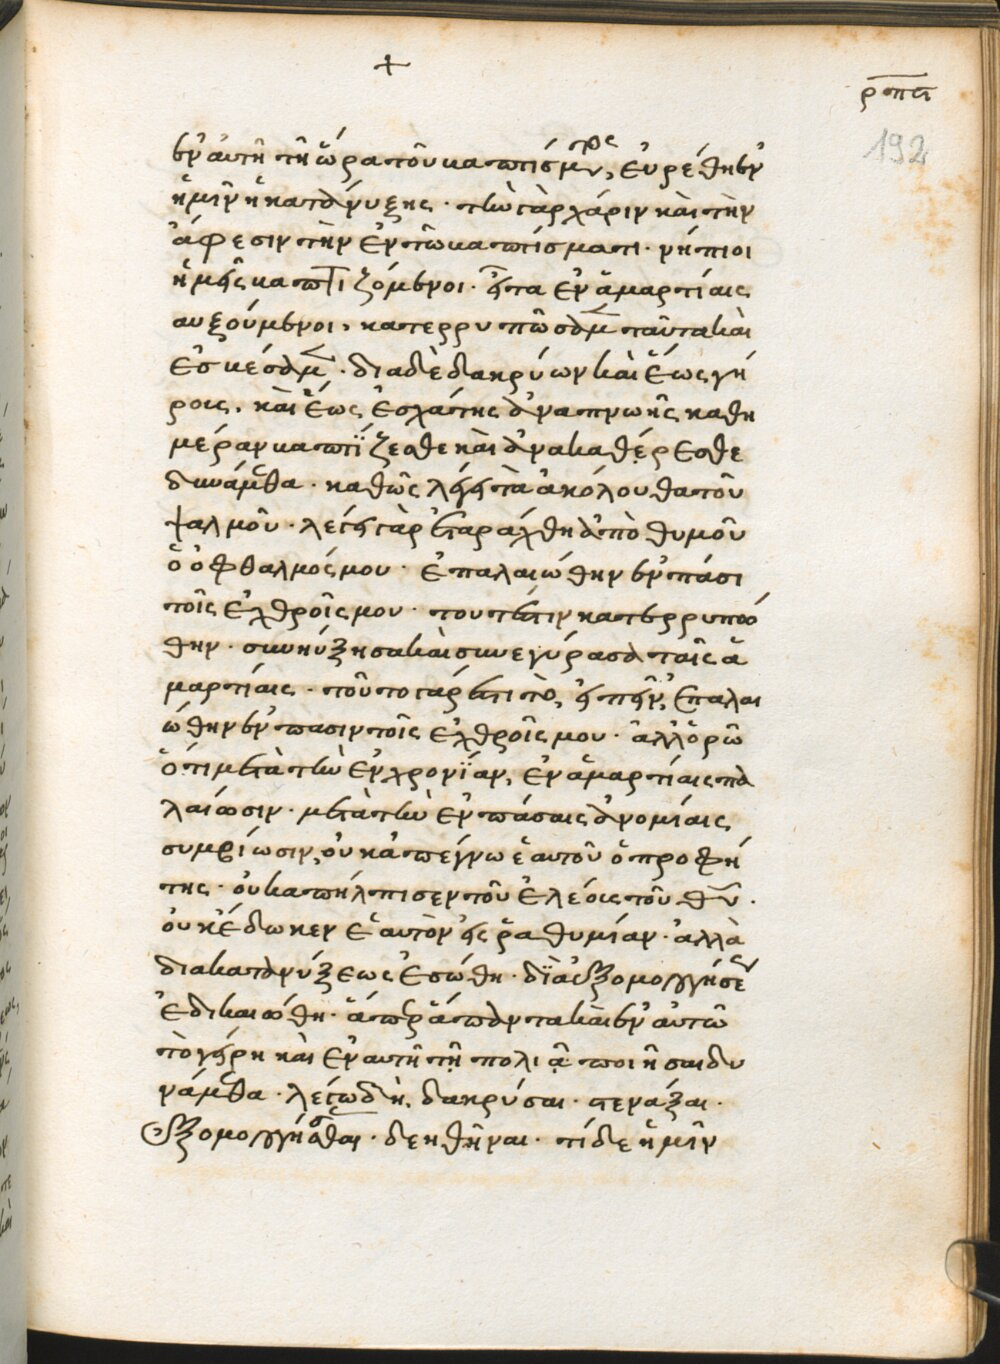 +
ρπς
192
ἐν αὐτῆ τῆ ὥρα τοῦ βαπτίσματος, εὑρέθη ἐν
ἡμῖν ἡ κατάψυξης · τὴν γὰρ χάριν καὶ τὴν
ἄφεσιν τὴν ἐν τῶ βαπτίσματι · νήπιοι
ἡμεῖς βαπτιζόμενοι · εἶτα ἐν ἁμαρτίαις
αυξούμενοι, κατερρυπώσαμεν ταῦτα καὶ
ἐσβέσαμεν · διὰ δὲ δακρύων καὶ ἕως γή
ρους, καὶ ἕως ἐσχάτης ἀναπνωῆς καθη
μέραν βαπτίζεσθε καὶ ἀνακαθέρεσθε
δυνάμεθα · καθὼς λέγει τὰ ἀκόλουθα τοῦ
ψαλμοῦ · λέγει γὰρ ἐταράχθη ἀπὸ θυμοῦ
ὁ ὀφθαλμός μου · ἐπαλαιώθην ἐν πάσι
τοῖς ἐχθροῖς μου · τουτέστιν κατερρυπώ
θην · συνηύξησα καὶ συνεγύρασα ταῖς ἁ
μαρτίαις · τοῦτο γάρ ἐστι τὸ, εἰπεῖν, ἐπαλαι
ώθην ἐν πασιν τοῖς ἐχθροῖς μου · ἀλλ' ὁρῶ
ὅτι μετὰ τὴν ἐγχρονΐαν, ἐν ἁμαρτίαις πα
λαίωσιν · μετὰ τὴν ἐν πάσαις ἀνομίαις
συμβίωσιν, οὐκ ἀπέγνω ἑαυτοῦ ὁ προφή
της · οὐκ ἀπήλπισεν τοῦ ἐλέους τοῦ θυ ·
οὐκ ἔδωκεν ἑαυτὸν εἰς ῥαθυμίαν · ἀλλὰ
διὰ καταψύξεως ἐσώθη · δϊ' ἐξομολογήσεως
ἐδικαιώθη · ἅπερ ἅπαντα καὶ ἐν αὐτῶ
τὸ γήρη καὶ ἐν αὐτῆ τῆ πολιᾶ ποιῆσαι δυ
νάμεθα · λέγω δὴ, δακρύσαι · στενάξαι ·
ἐξομολογήσασθαι · δεηθῆναι · τί δε ἡμῖν